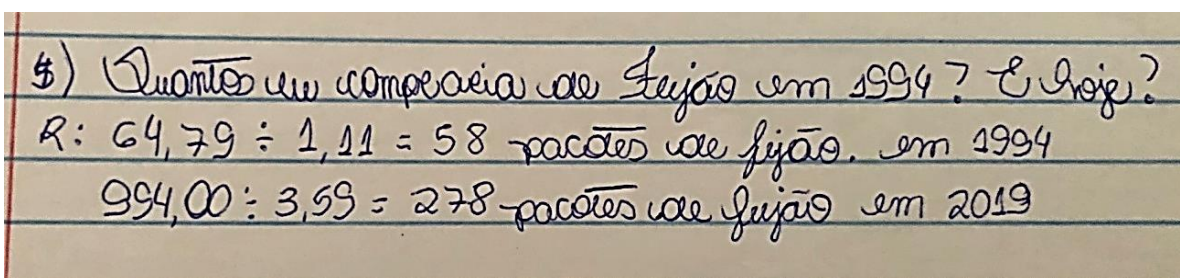 $) Quantos eu compraria de Feijão em 1994? E hoje?
R: 64,79 ÷ 1,11 = 58 pacotes de fijão. em 1994
994,00 ÷ 3,59 = 278 pacotes de feijão em 2019